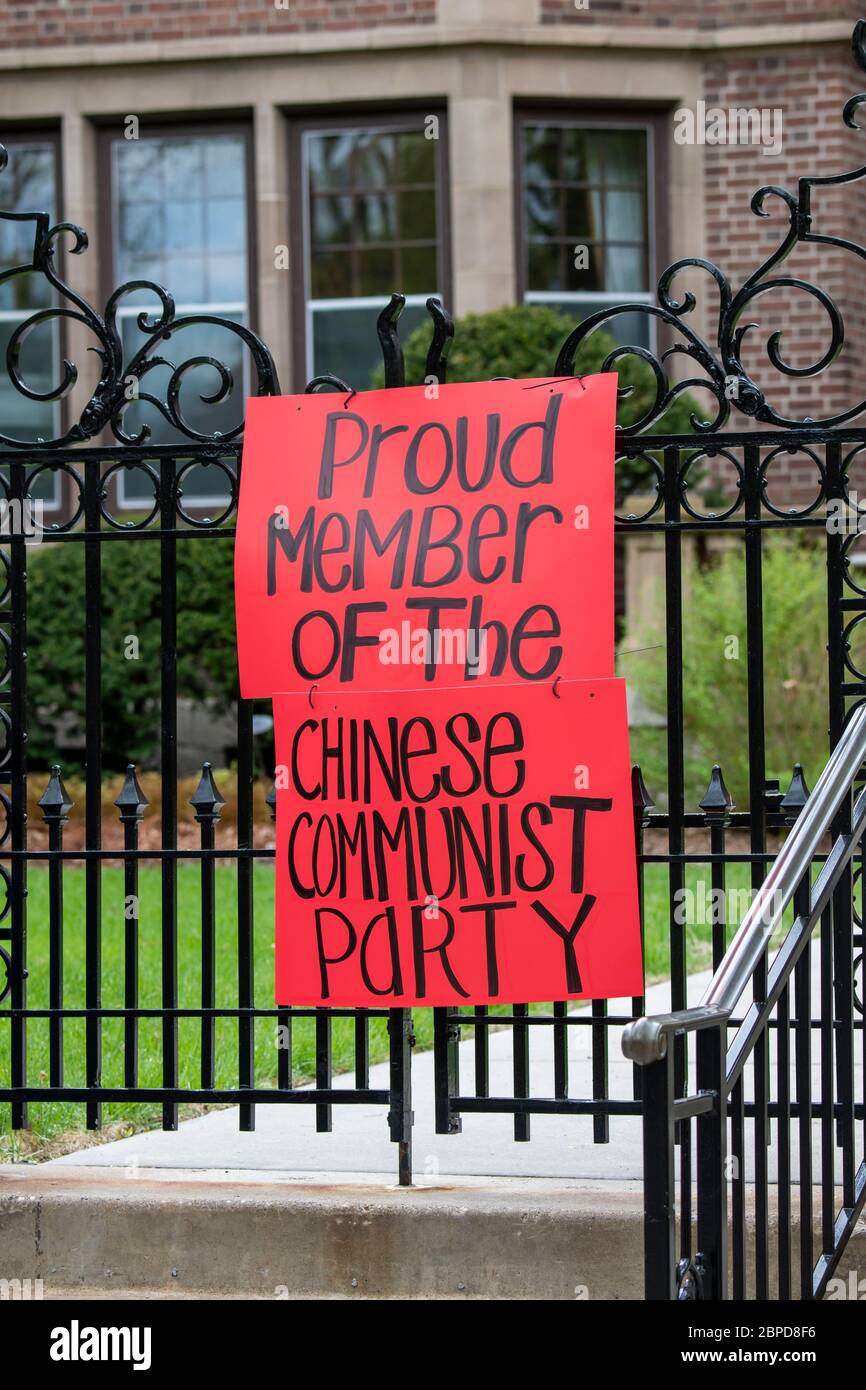 Proud
MeMBer
OF The
CHINese
COMMUNIST
ParTy
alamy
Image ID: 2BPD8F6
www.alamy.com